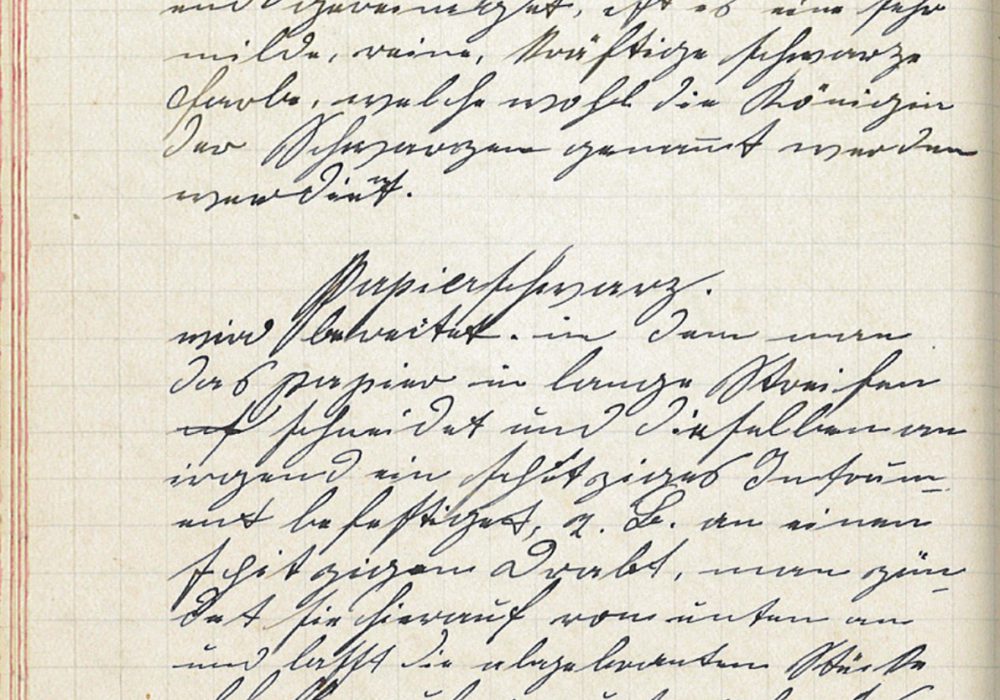 und gereinigt, ist es eine sehr
milde, reine, kräftige schwarze
Farbe, welche wohl die Königin
der Schwarzen genannt werden
verdient.
Papierschwarz.
wird bereitet. in dem man
das papier in lange Streifen
schneidet und dieselben an
irgend ein spitziges Instrum-
ent befestiget, z. B. an einen
spitzigen Draht, man zün-
det sie hierauf von unten an
und lasst die abgebranten Stücke